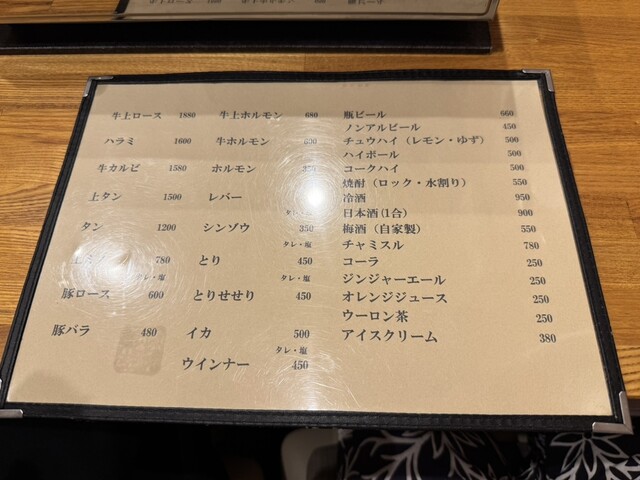 牛上ロース 1880
ハラミ 1600
牛カルビ 1580
上タン 1500
タン 1200
780
タレ・塩
豚ロース 600
豚バラ 480
牛上ホルモン 680
牛ホルモン
ホルモン
レバー
タレ
シンゾウ 350
タレ・塩
とり 450
タレ・塩
とりせせり 450
イカ 500
タレ・塩
ウインナー 450
瓶ビール 660
ノンアルビール 450
チュウハイ（レモン・ゆず） 500
ハイボール 500
コークハイ 500
焼酎（ロック・水割り） 550
冷酒 950
日本酒(1合) 900
梅酒（自家製） 550
チャミスル 780
コーラ 250
ジンジャーエール 250
オレンジジュース 250
ウーロン茶 250
アイスクリーム 380